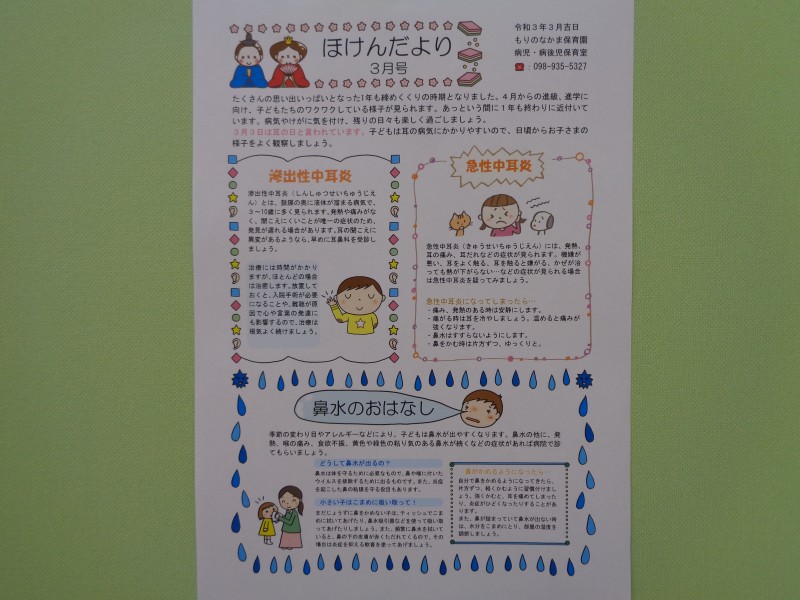 ほけんだより
3月号
令和３年３月吉日
もりのなかま保育園
病児・病後児保育室
☎：098-935-5327
たくさんの思い出いっぱいとなった1年も締めくくりの時期となりました。４月からの進級、進学に
向け、子どもたちのワクワクしている様子が見られます。あっという間に１年も終わりに近付いて
います。病気やけがに気を付け、残りの日々も楽しく過ごしましょう。
３月３日は耳の日と言われています。子どもは耳の病気にかかりやすいので、日頃からお子さまの
様子をよく観察しましょう。
滲出性中耳炎
滲出性中耳炎（しんしゅつせいちゅうじえ
ん）とは、鼓膜の奥に液体が溜まる病気で、
３～10歳に多く見られます。発熱や痛みがな
く、聞こえにくいことが唯一の症状のため、
発見が遅れる場合があります。耳の聞こえに
異変があるようなら、早めに耳鼻科を受診し
ましょう。
治療には時間がかかり
ますが、ほとんどの場合
は治癒します。放置して
おくと、入院手術が必要
になることや、難聴が原
因で心や言葉の発達に
も影響するので、治療は
根気よく続けましょう。
急性中耳炎
急性中耳炎（きゅうせいちゅうじえん）には、発熱、
耳の痛み、耳だれなどの症状が見られます。機嫌が
悪い、耳をよく触る、耳を触ると嫌がる、かぜが治
っても熱が下がらない…などの症状が見られる場合
は急性中耳炎を疑ってみましょう。
急性中耳炎になってしまったら…
・痛み、発熱のある時は安静にします。
・痛がる時は耳を冷やしましょう。温めると痛みが
強くなります。
・鼻水はすすらないようにします。
・鼻をかむ時は片方ずつ、ゆっくりと。
鼻水のおはなし
季節の変わり目やアレルギーなどにより、子どもは鼻水が出やすくなります。鼻水の他に、発
熱、喉の痛み、食欲不振、黄色や緑色の粘り気のある鼻水が続くなどの症状があれば病院で診
てもらいましょう。
どうして鼻水が出るの？
鼻水は体を守るために必要なもので、鼻や喉に付いた
ウイルスを排除するために出るものです。また、炎症
を起こした鼻の粘膜を守る役目もあります。
小さい子はこまめに吸い取って！
まだじょうずに鼻をかめない子は、ティッシュでこま
めに拭いてあげたり、鼻水吸引器などを使って吸い取
ってあげたりしましょう。また、頻繁に鼻水を拭いて
いると、鼻の下の皮膚が赤くただれてくるので、その
場合は炎症を抑える軟膏を塗ってあげましょう。
鼻がかめるようになったら…
自分で鼻をかめるようになってきたら、
片方ずつ、軽くかむように習慣付けまし
ょう。強くかむと、耳を痛めてしまった
り、炎症がひどくなったりすることがあ
ります。
また、鼻が詰まっていて鼻水が出ない時
は、水分をこまめにとり、部屋の湿度を
調節しましょう。